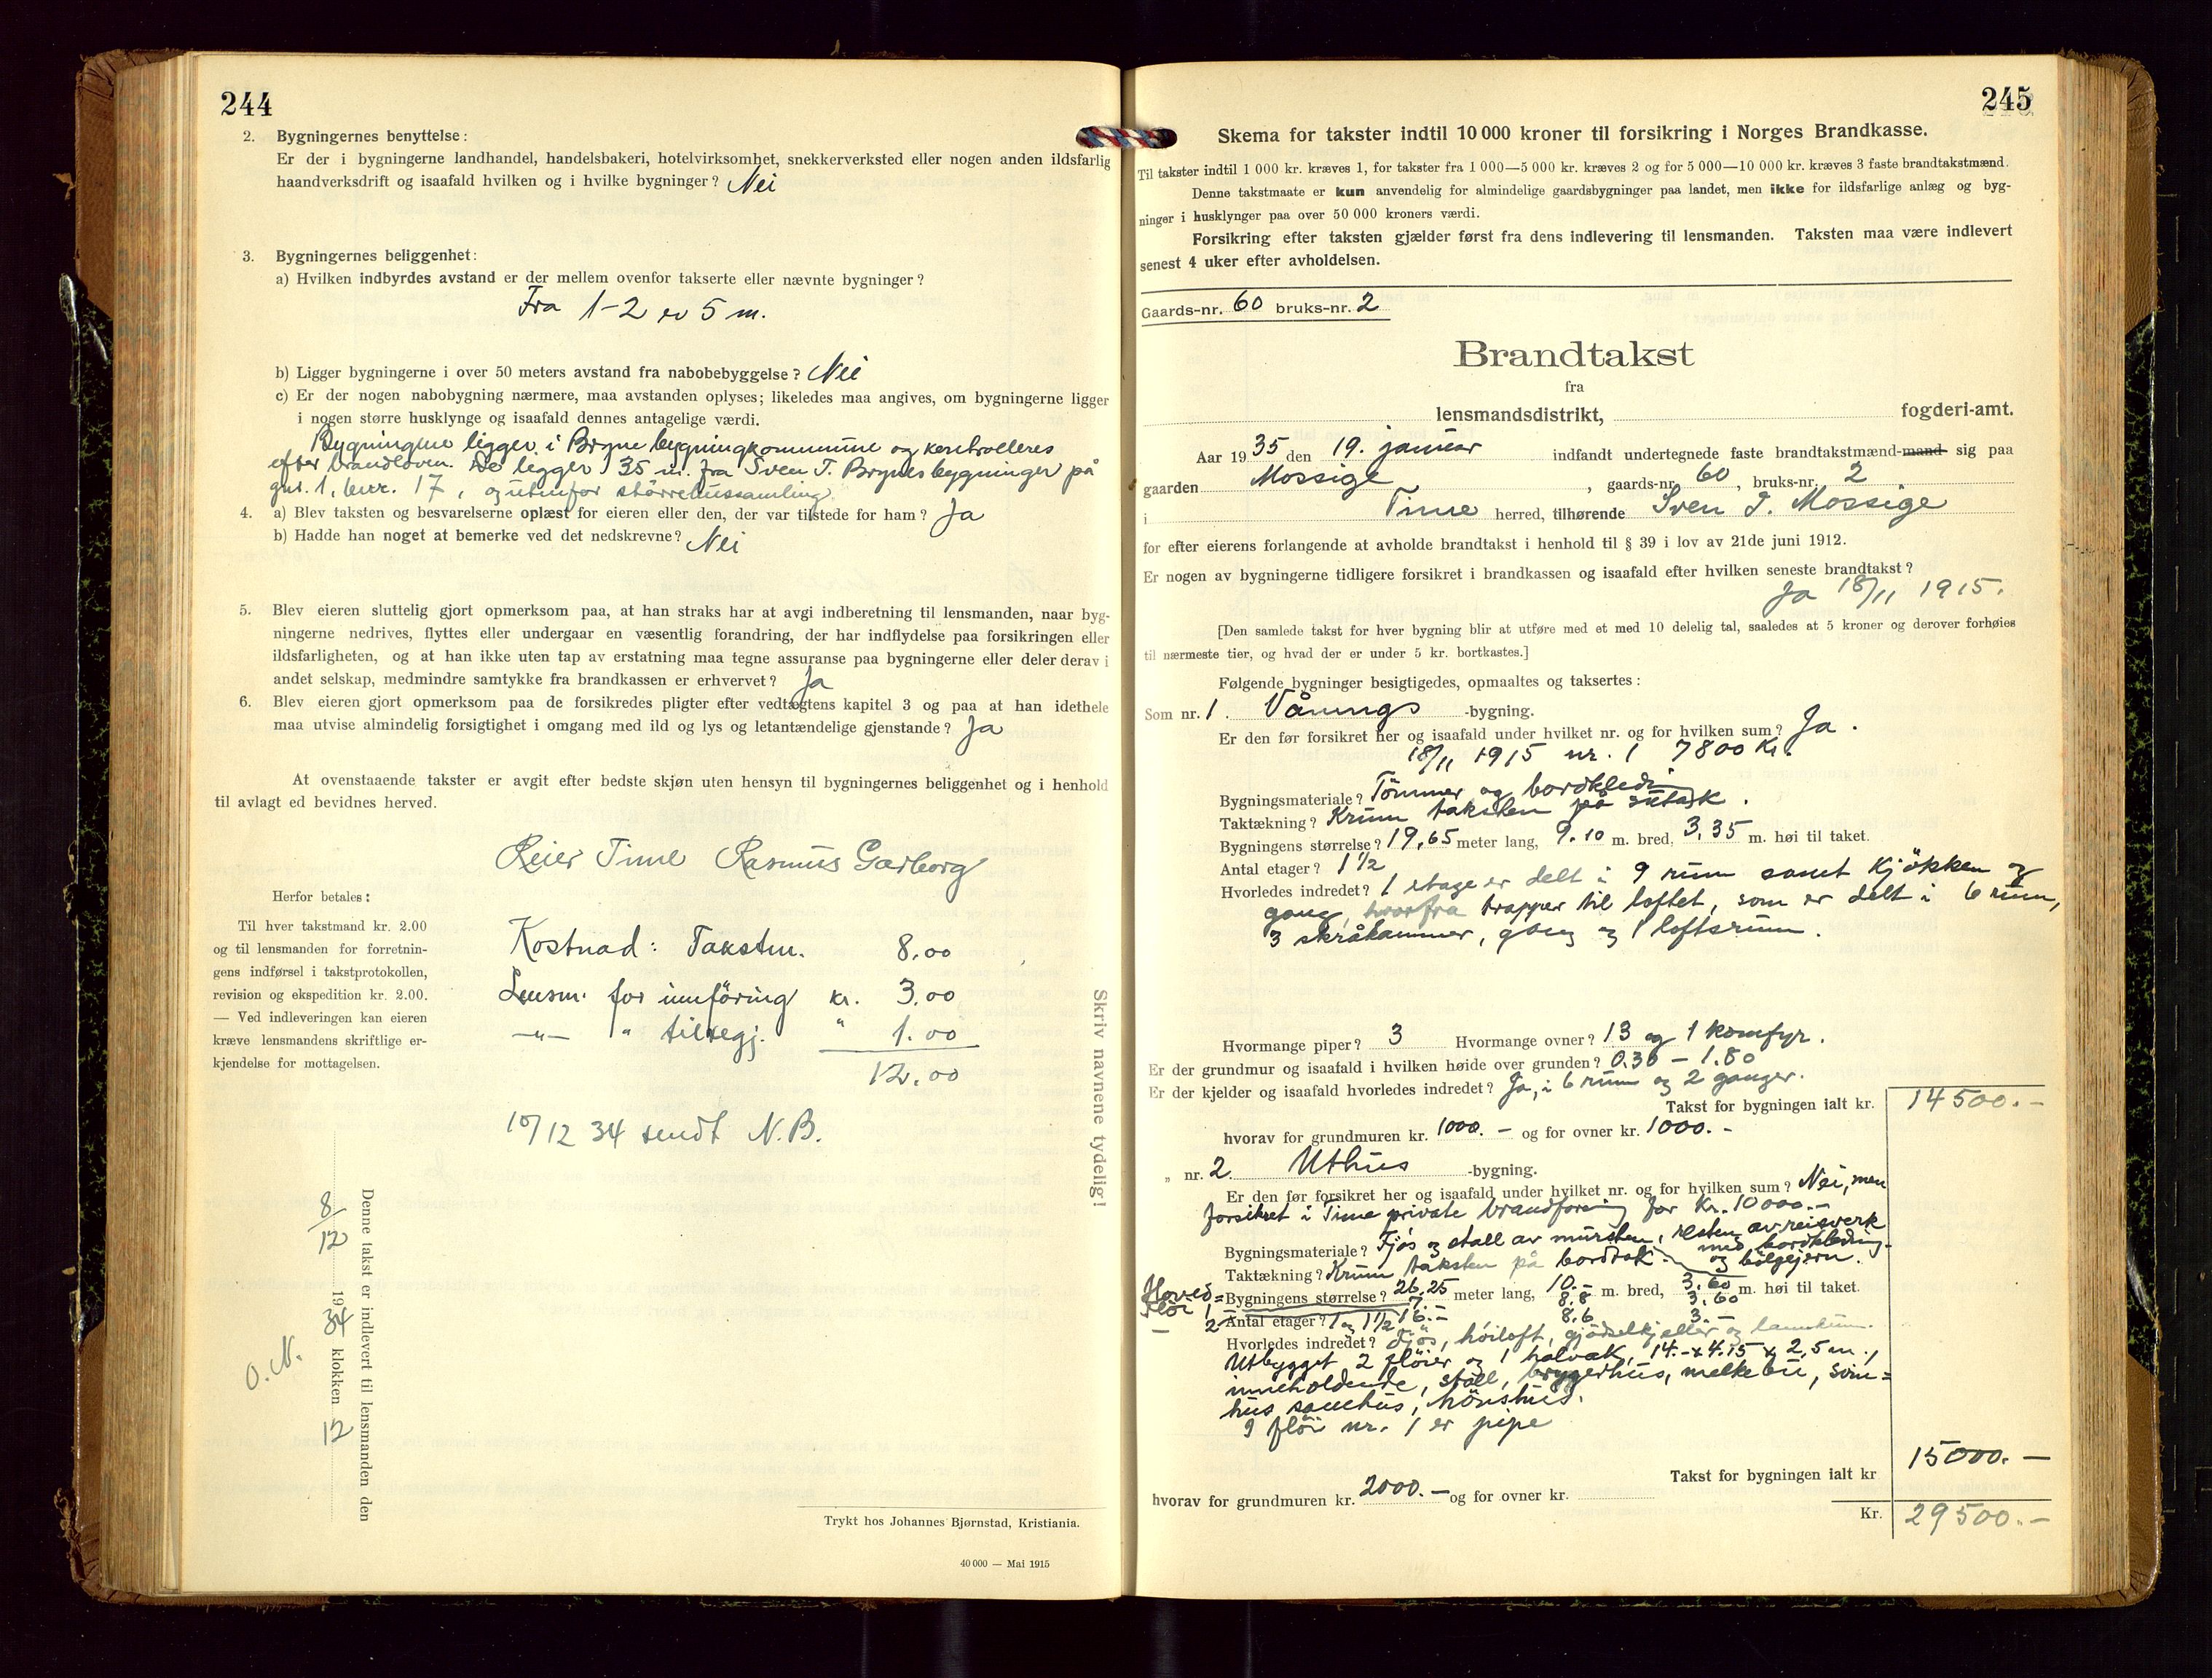 244
2. Bygningernes benyttelse:
Er der i bygningerne landhandel, handelsbakeri, hotelvirksomhet, snekkerverksted eller nogen anden ildsfarlig
haandverksdrift og isaafald hvilken og i hvilke bygninger? Nei
3. Bygningernes beliggenhet:
a) Hvilken indbyrdes avstand er der mellem ovenfor takserte eller nævnte bygninger?
Fra 1-2 er 5 m.
b) Ligger bygningerne i over 50 meters avstand fra nabobebyggelse? Nei
c) Er der nogen nabobygning nærmere, maa avstanden oplyses; likeledes maa angives, om bygningerne ligger
i nogen større husklynge og isaafald dennes antagelige værdi.
Bygningene ligger i Bryne bygningkommune og kontrolleres
efter brandloven. De legger 35 m. fra Sven T. Brynes bygninger på
gnr. 1, bnr. 17, og utenfor större hussamling.
4. a) Blev taksten og besvarelserne oplæst for eieren eller den, der var tilstede for ham? Ja
b) Hadde han noget at bemerke ved det nedskrevne? Nei
5. Blev eieren sluttelig gjort opmerksom paa, at han straks har at avgi indberetning til lensmanden, naar byg-
ningerne nedrives, flyttes eller undergaar en væsentlig forandring, der har indflydelse paa forsikringen eller
ildsfarligheten, og at han ikke uten tap av erstatning maa tegne assuranse paa bygningerne eller deler derav i
andet selskap, medmindre samtykke fra brandkassen er erhvervet? Ja
6. Blev eieren gjort opmerksom paa de forsikredes pligter efter vedtægtens kapitel 3 og paa at han idethele
maa utvise almindelig forsigtighet i omgang med ild og lys og letantændelige gjenstande? Ja
At ovenstaaende takster er avgit efter bedste skjøn uten hensyn til bygningernes beliggenhet og i henhold
til avlagt ed bevidnes herved.
Reier Time Rasmus Garborg
Herfor betales:
Til hver takstmand kr. 2.00
og til lensmanden for forretnin-
gens indførsel i takstprotokollen,
revision og ekspedition kr. 2.00.
— Ved indleveringen kan eieren
kræve lensmandens skriftlige er-
kjendelse for mottagelsen.
Kostnad: Takstm. 8.00
Lensm. for innföring kr. 3.00
-"- " tilsegj. " 1.00
12.00
10/12 34 sendt N.B.
Skriv navnene tydelig!
Denne takst er indlevert til lensmanden den
8/12 1934 klokken 12
O.N.
Trykt hos Johannes Bjørnstad, Kristiania.
40000 — Mai 1915
245
Skema for takster indtil 10 000 kroner til forsikring i Norges Brandkasse.
Til takster indtil 1 000 kr. kræves 1, for takster fra 1 000—5 000 kr. kræves 2 og for 5 000—10 000 kr. kræves 3 faste brandtakstmænd.
Denne takstmaate er kun anvendelig for almindelige gaardsbygninger paa landet, men ikke for ildsfarlige anlæg og byg-
ninger i husklynger paa over 50 000 kroners værdi.
Forsikring efter taksten gjælder først fra dens indlevering til lensmanden. Taksten maa være indlevert
senest 4 uker efter avholdelsen.
Gaards-nr. 60 bruks-nr. 2
Brandtakst
fra
lensmandsdistrikt, fogderi-amt.
Aar 1935 den 19. januar indfandt undertegnede faste brandtakstmænd-mand sig paa
gaarden Mossige, gaards-nr. 60, bruks-nr. 2
i Time herred, tilhørende Sven I. Mossige
for efter eierens forlangende at avholde brandtakst i henhold til § 39 i lov av 21de juni 1912.
Er nogen av bygningerne tidligere forsikret i brandkassen og isaafald efter hvilken seneste brandtakst?
Ja 18/11 1915.
[Den samlede takst for hver bygning blir at utføre med et med 10 delelig tal, saaledes at 5 kroner og derover forhøies
til nærmeste tier, og hvad der er under 5 kr. bortkastes.]
Følgende bygninger besigtigedes, opmaaltes og taksertes:
Som nr. 1. Vånings -bygning.
Er den før forsikret her og isaafald under hvilket nr. og for hvilken sum? Ja.
18/11 1915 nr. 1 7800 Kr.
Bygningsmateriale? Tömmer og bordkledn.
Taktækning? Krum taksten på sutak.
Bygningens størrelse? 19,65 meter lang, 9.10 m. bred, 3,35 m. høi til taket.
Antal etager? 1 1/2
Hvorledes indredet? 1 etage er delt i 9 rum samt kjökken og
gang, hvorfra trapper til loftet, som er delt i 6 rum,
3 skråkammer, gang og 1 loftsrum.
Hvormange piper? 3 Hvormange ovner? 13 og 1 komfyr.
Er der grundmur og isaafald i hvilken høide over grunden? 0.30 – 1.80
Er der kjelder og isaafald hvorledes indredet? Ja, i 6 rum og 2 ganger.
Takst for bygningen ialt kr. 14500.-
hvorav for grundmuren kr. 1000.- og for ovner kr. 1000.-
„ nr. 2. Uthus -bygning.
Er den før forsikret her og isaafald under hvilket nr. og for hvilken sum? Nei, men
forsikret i Time private brandforening for Kr. 10000.-
Bygningsmateriale? Fjös og stall av mursten, resten av reisverk
med bordkledning
Taktækning? Krum taksten på bordtak og bölgejern.
Hoved= Bygningens størrelse? 26,25 meter lang, 10.- m. bred, 3,60 m. høi til taket.
Flöi 1 7.- 8.8 3.60
- 2 Antal etager? 1 og 1 1/2 16.- 8.6 3.-
Hvorledes indredet? Fjös, höiloft, gjödselkjeller og
Utbygget 2 flöier og 1 halvtak, 14.- x 4.75 x 2,5 m.,
inneholdende, stall, bryggerhus, melkebu, som=
hus sauehus, hönshus.
I flöi nr. 1 er pipe
Takst for bygningen ialt kr 15000.-
hvorav for grundmuren kr. 2000.- og for ovner kr.
Kr. 29500.-